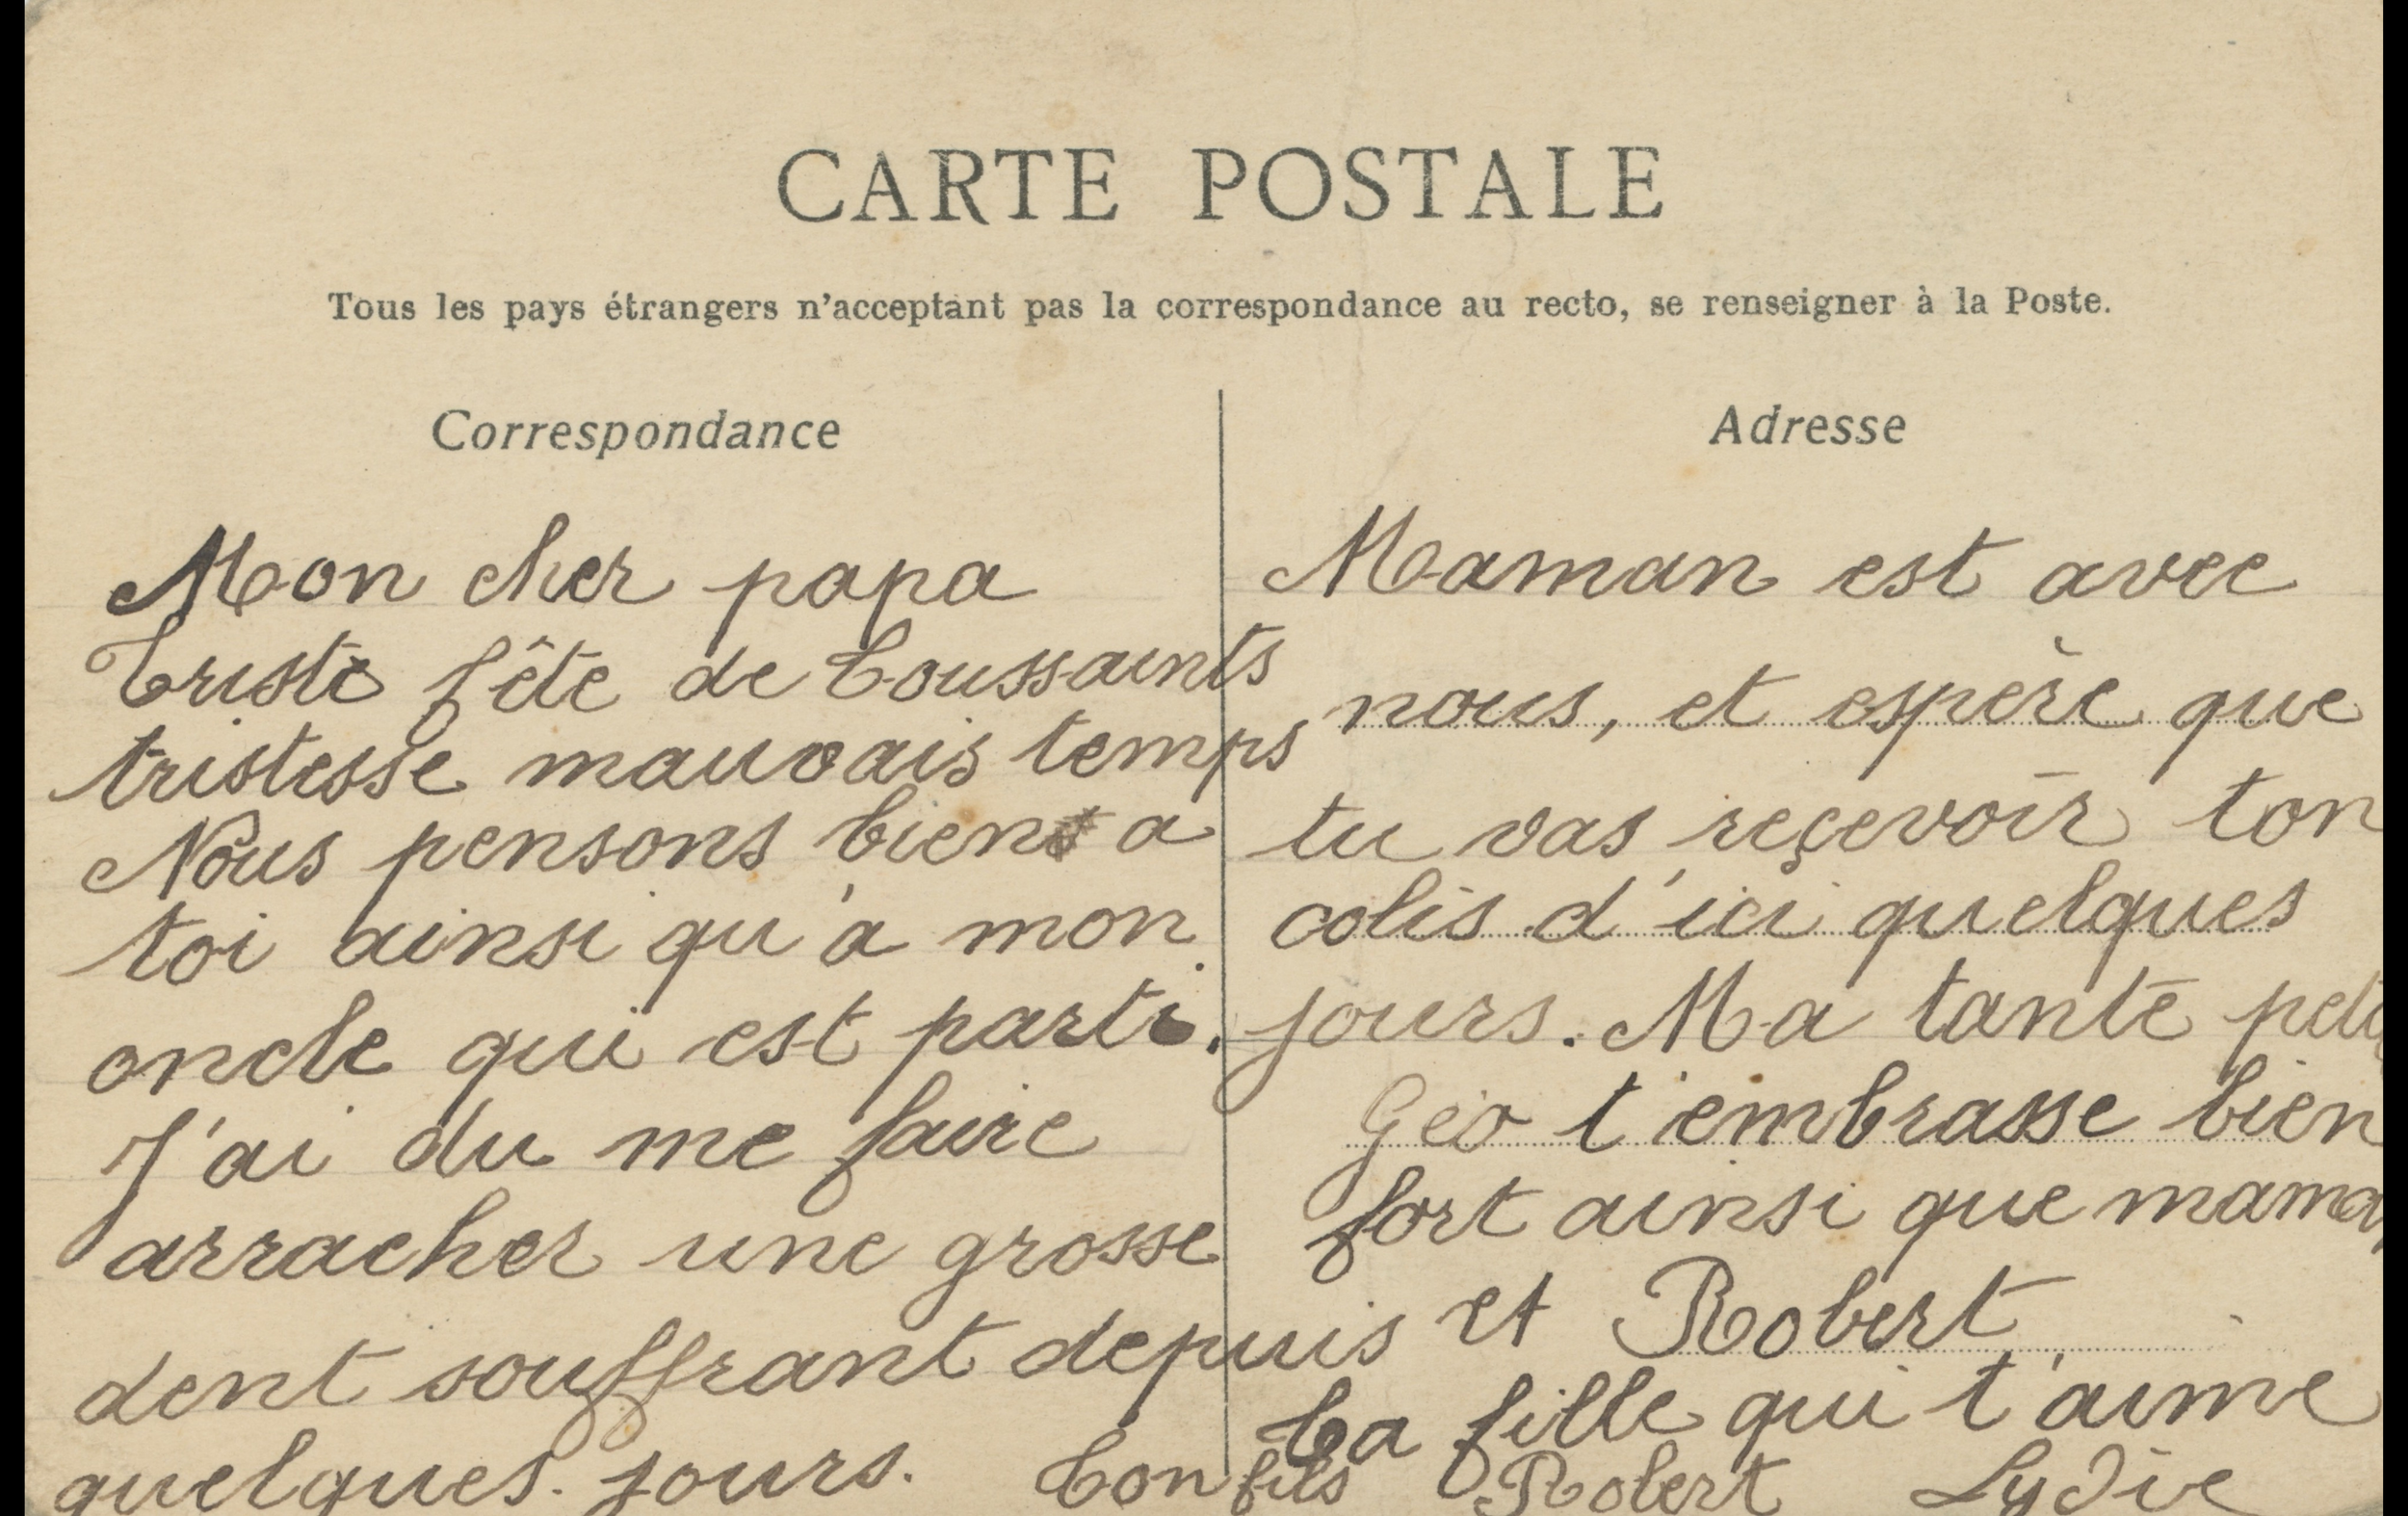 CARTE POSTALE
Tous les pays étrangers n'acceptant pas la correspondance au recto, se renseigner à la Poste.
Correspondance
Mon cher papa
Triste fête de Toussaints
tristesse mauvais temps
Nous pensons bien a
toi ainsi qu'à mon
oncle qui est parti.
J'ai du me faire
arracher une grosse
dent souffrant depuis
quelques jours.
Adresse
Maman est avec
nous, et espère que
tu vas reçevoir ton
colis d'ici quelques
jours. Ma tante
Géo t'embrasse bien
fort ainsi que maman
et Robert
Ta fille qui t'aime
Ton fils Robert Lydie